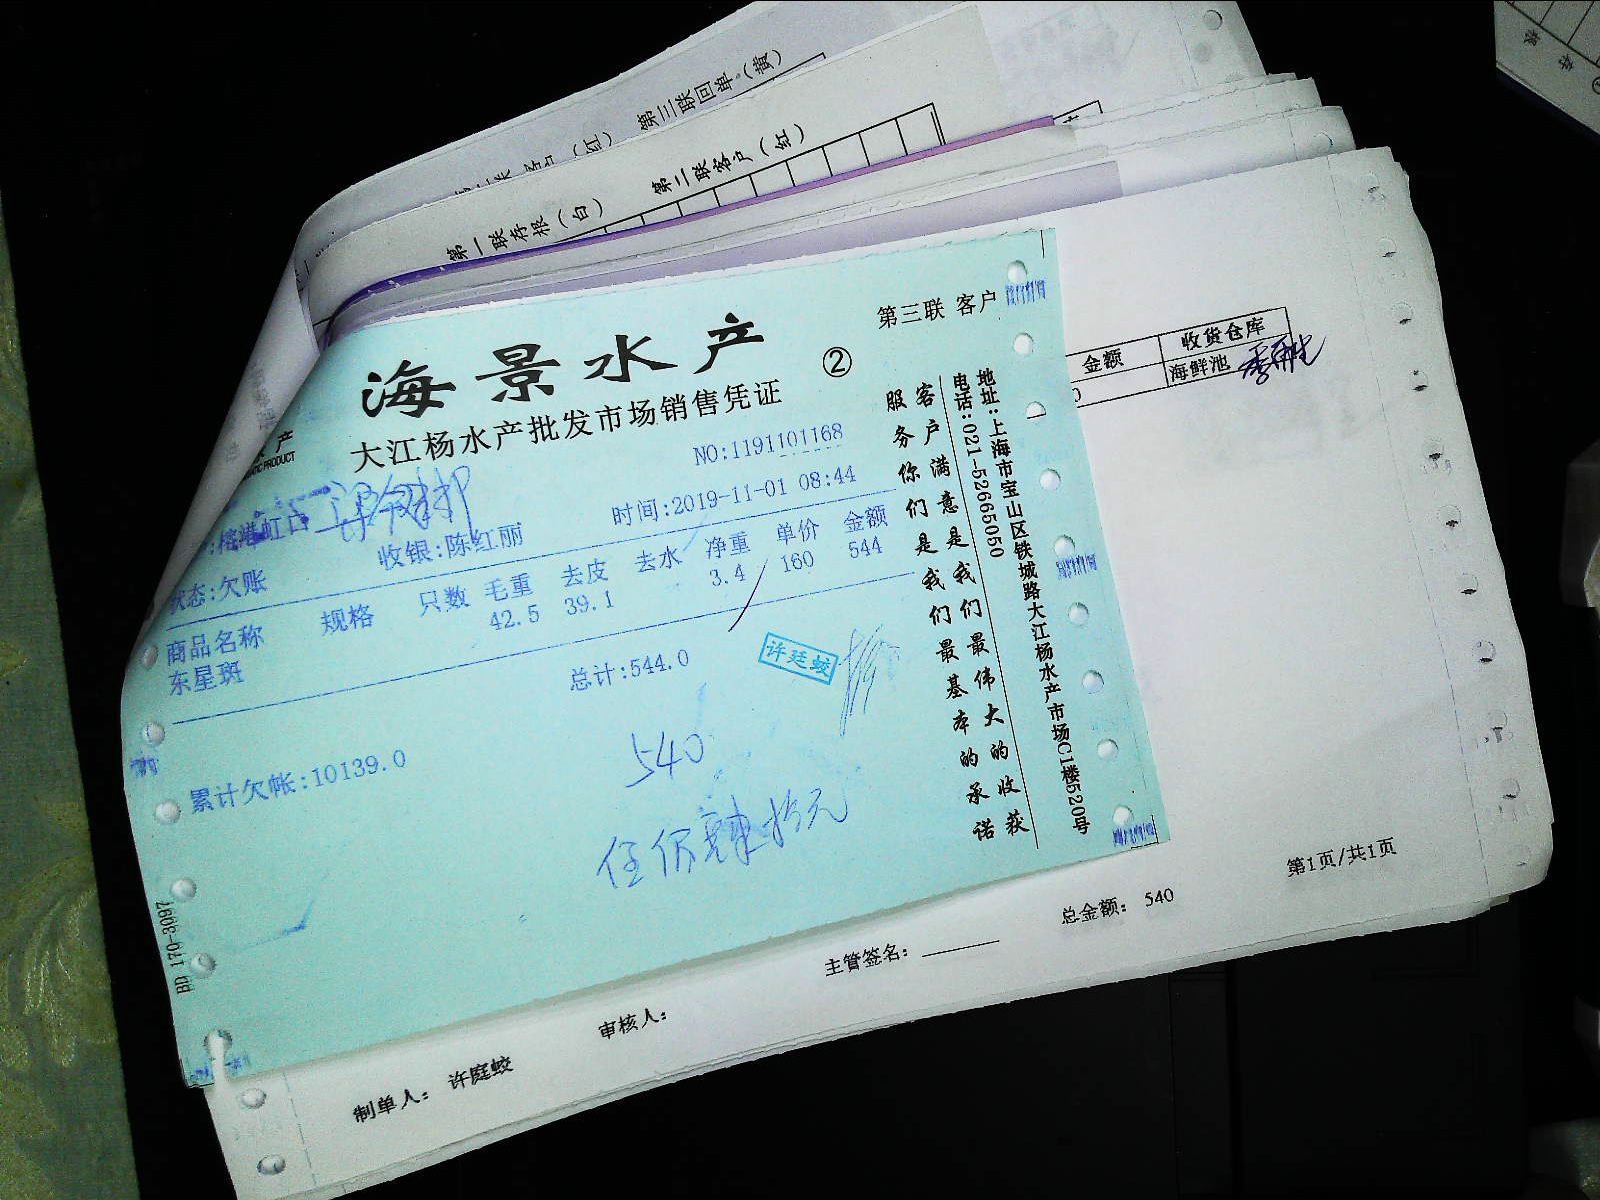 第三联回单(黄)
第二联客户(红)
第一联存根(白)
存
根
第三联 客户
海景水产
②
大江杨水产批发市场销售凭证
NO:1191101168
时间:2019-11-01 08:44
收银:陈红丽
状态:欠账
商品名称 规格 只数 毛重 去皮 去水 净重 单价 金额
东星斑 42.5 39.1 3.4 160 544
总计:544.0
许廷蛟
540
累计欠帐:10139.0
伍佰肆拾元
客户满意是我们最伟大的收获
服务你们是我们最基本的承诺
地址:上海市宝山区铁城路大江杨水产市场C1楼520号
电话:021-52665050
BD 170-3097
金额 收货仓库
海鲜池
第1页/共1页
总金额: 540
主管签名:
审核人:
制单人: 许庭蛟